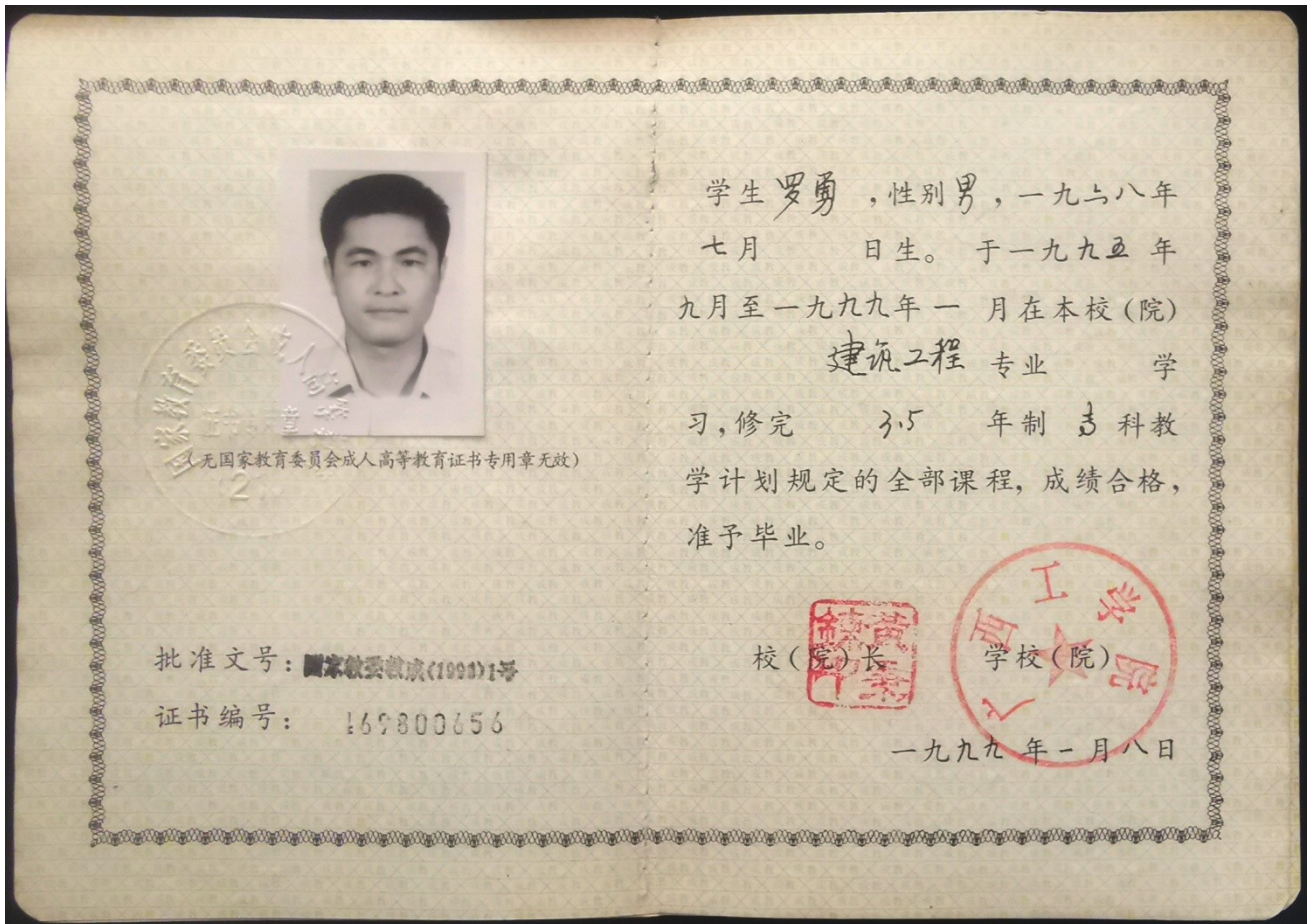 国家教育委员会成人高等教育
证书专用章
2
(无国家教育委员会成人高等教育证书专用章无效)
批准文号:国家教委教成(1993)1号
证书编号: 169800656
学生罗勇 ,性别男,一九六八年
七月 日生。于一九九五年
九月至一九九九年一月在本校(院)
建筑工程 专业 学
习,修完 3.5 年制 专科教
学计划规定的全部课程,成绩合格,
准予毕业。
校(院)长 学校(院)
广西工学院
一九九九年一月八日